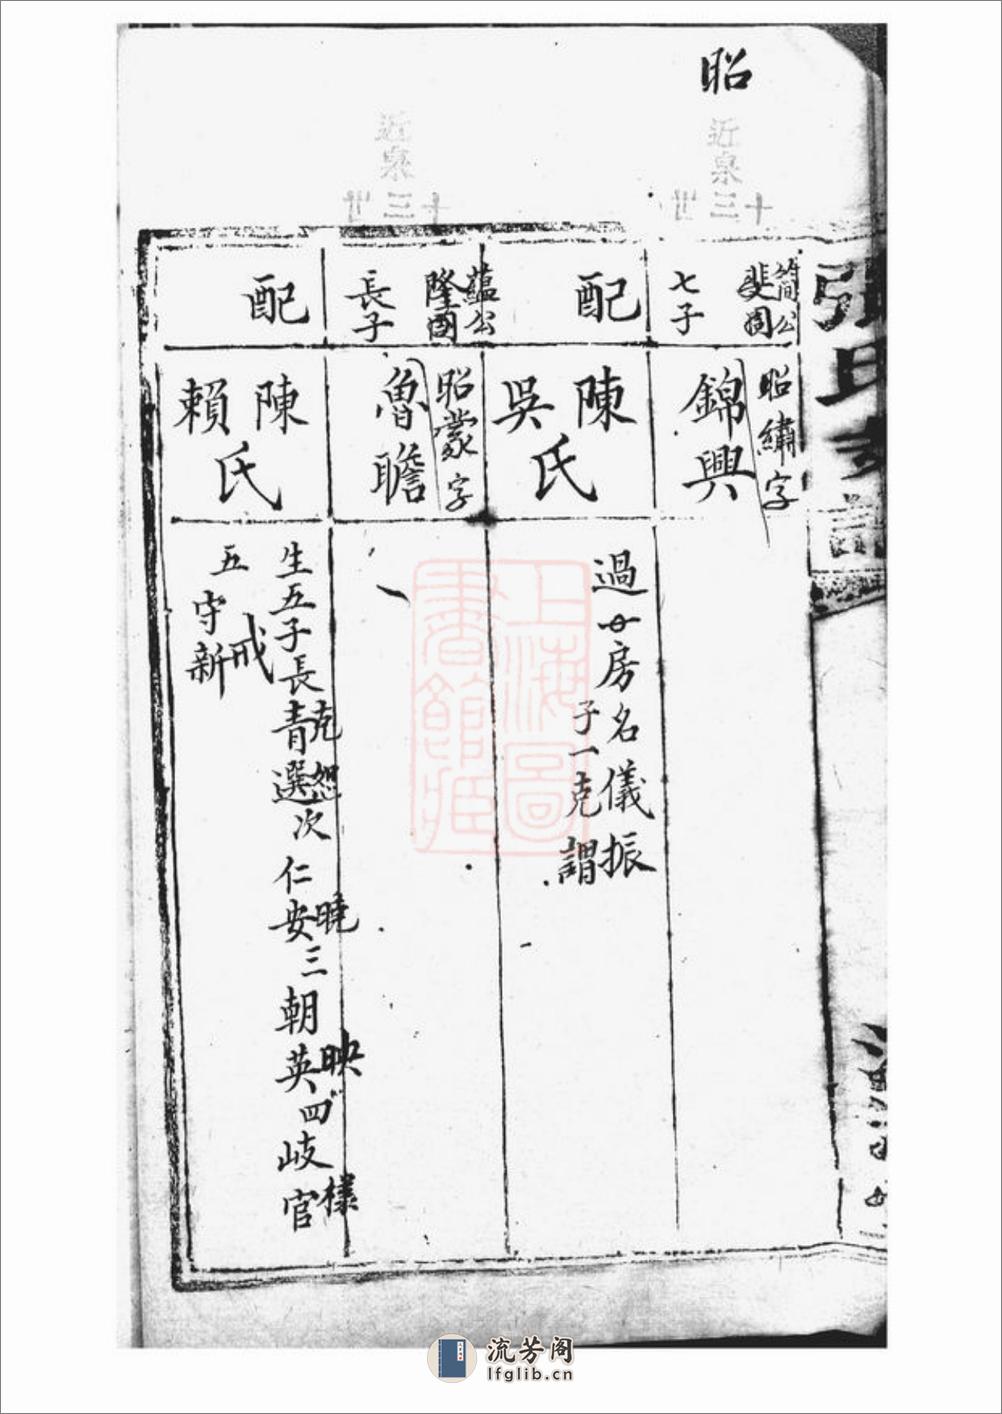 昭
近泉
十三世
簡公
七子
昭繡字
錦興
配
陳
吳
氏
過廿房名儀振
子一克謂
近泉
十三世
蘊公
長子
昭蒙字
魯瞻
配
陳
賴
氏
克恕
曉
映
様
生五子長青選次仁安三朝英四岐官
戒
五守新
張氏
上海圖
書館藏
流芳阁
lfglib.cn